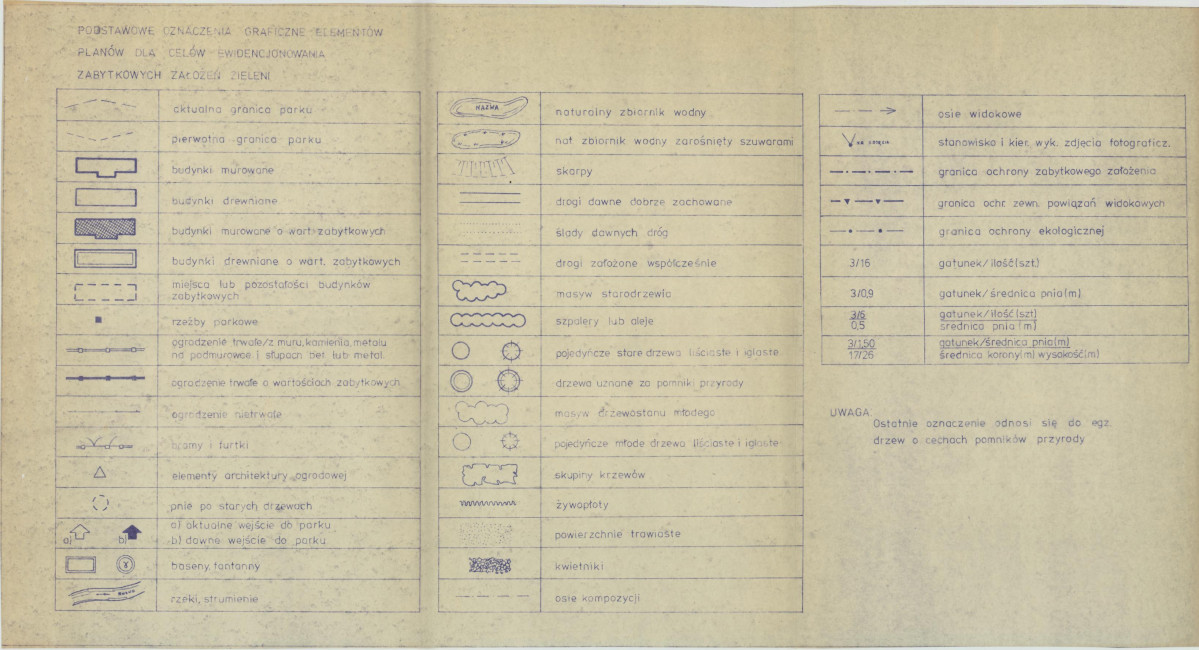 PODSTAWOWE OZNACZENIA GRAFICZNE ELEMENTÓW
PLANÓW DLA CELÓW EWIDENCJONOWANIA
ZABYTKOWYCH ZAŁOŻEŃ ZIELENI
aktualna granica parku
pierwotna granica parku
budynki murowane
budynki drewniane
budynki murowane o wart. zabytkowych
budynki drewniane o wart. zabytkowych
miejsca lub pozostałości budynków
zabytkowych
rzeźby parkowe
ogrodzenie trwałe/z muru, kamienia, metalu
na podmurówce i słupach bet. lub metal.
ogrodzenie trwałe o wartościach zabytkowych
ogrodzenie nietrwałe
bramy i furtki
elementy architektury ogrodowej
pnie po starych drzewach
a) b)
a) aktualne wejście do parku
b) dawne wejście do parku
baseny, fontanny
rzeki, strumienie
NAZWA
naturalny zbiornik wodny
nat. zbiornik wodny zarośnięty szuwarami
skarpy
drogi dawne dobrze zachowane
ślady dawnych dróg
drogi założone współcześnie
masyw starodrzewia
szpalery lub aleje
pojedyńcze stare drzewa liściaste i iglaste
drzewa uznane za pomniki przyrody
masyw drzewostanu młodego
pojedyńcze młode drzewa liściaste i iglaste
skupiny krzewów
żywopłoty
powierzchnie trawiaste
kwietniki
osie kompozycji
osie widokowe
stanowisko i kier. wyk. zdjęcia fotograficz.
granica ochrony zabytkowego założenia
granica ochr. zewn. powiązań widokowych
granica ochrony ekologicznej
3/16 gatunek/ilość(szt.)
3/0,9 gatunek/średnica pnia(m)
3/6 gatunek/ilość(szt)
0,5 średnica pnia(m)
3/1,50 gatunek/średnica pnia(m)
17/26 średnica korony(m) wysokość(m)
UWAGA:
Ostatnie oznaczenie odnosi się do egz.
drzew o cechach pomników przyrody